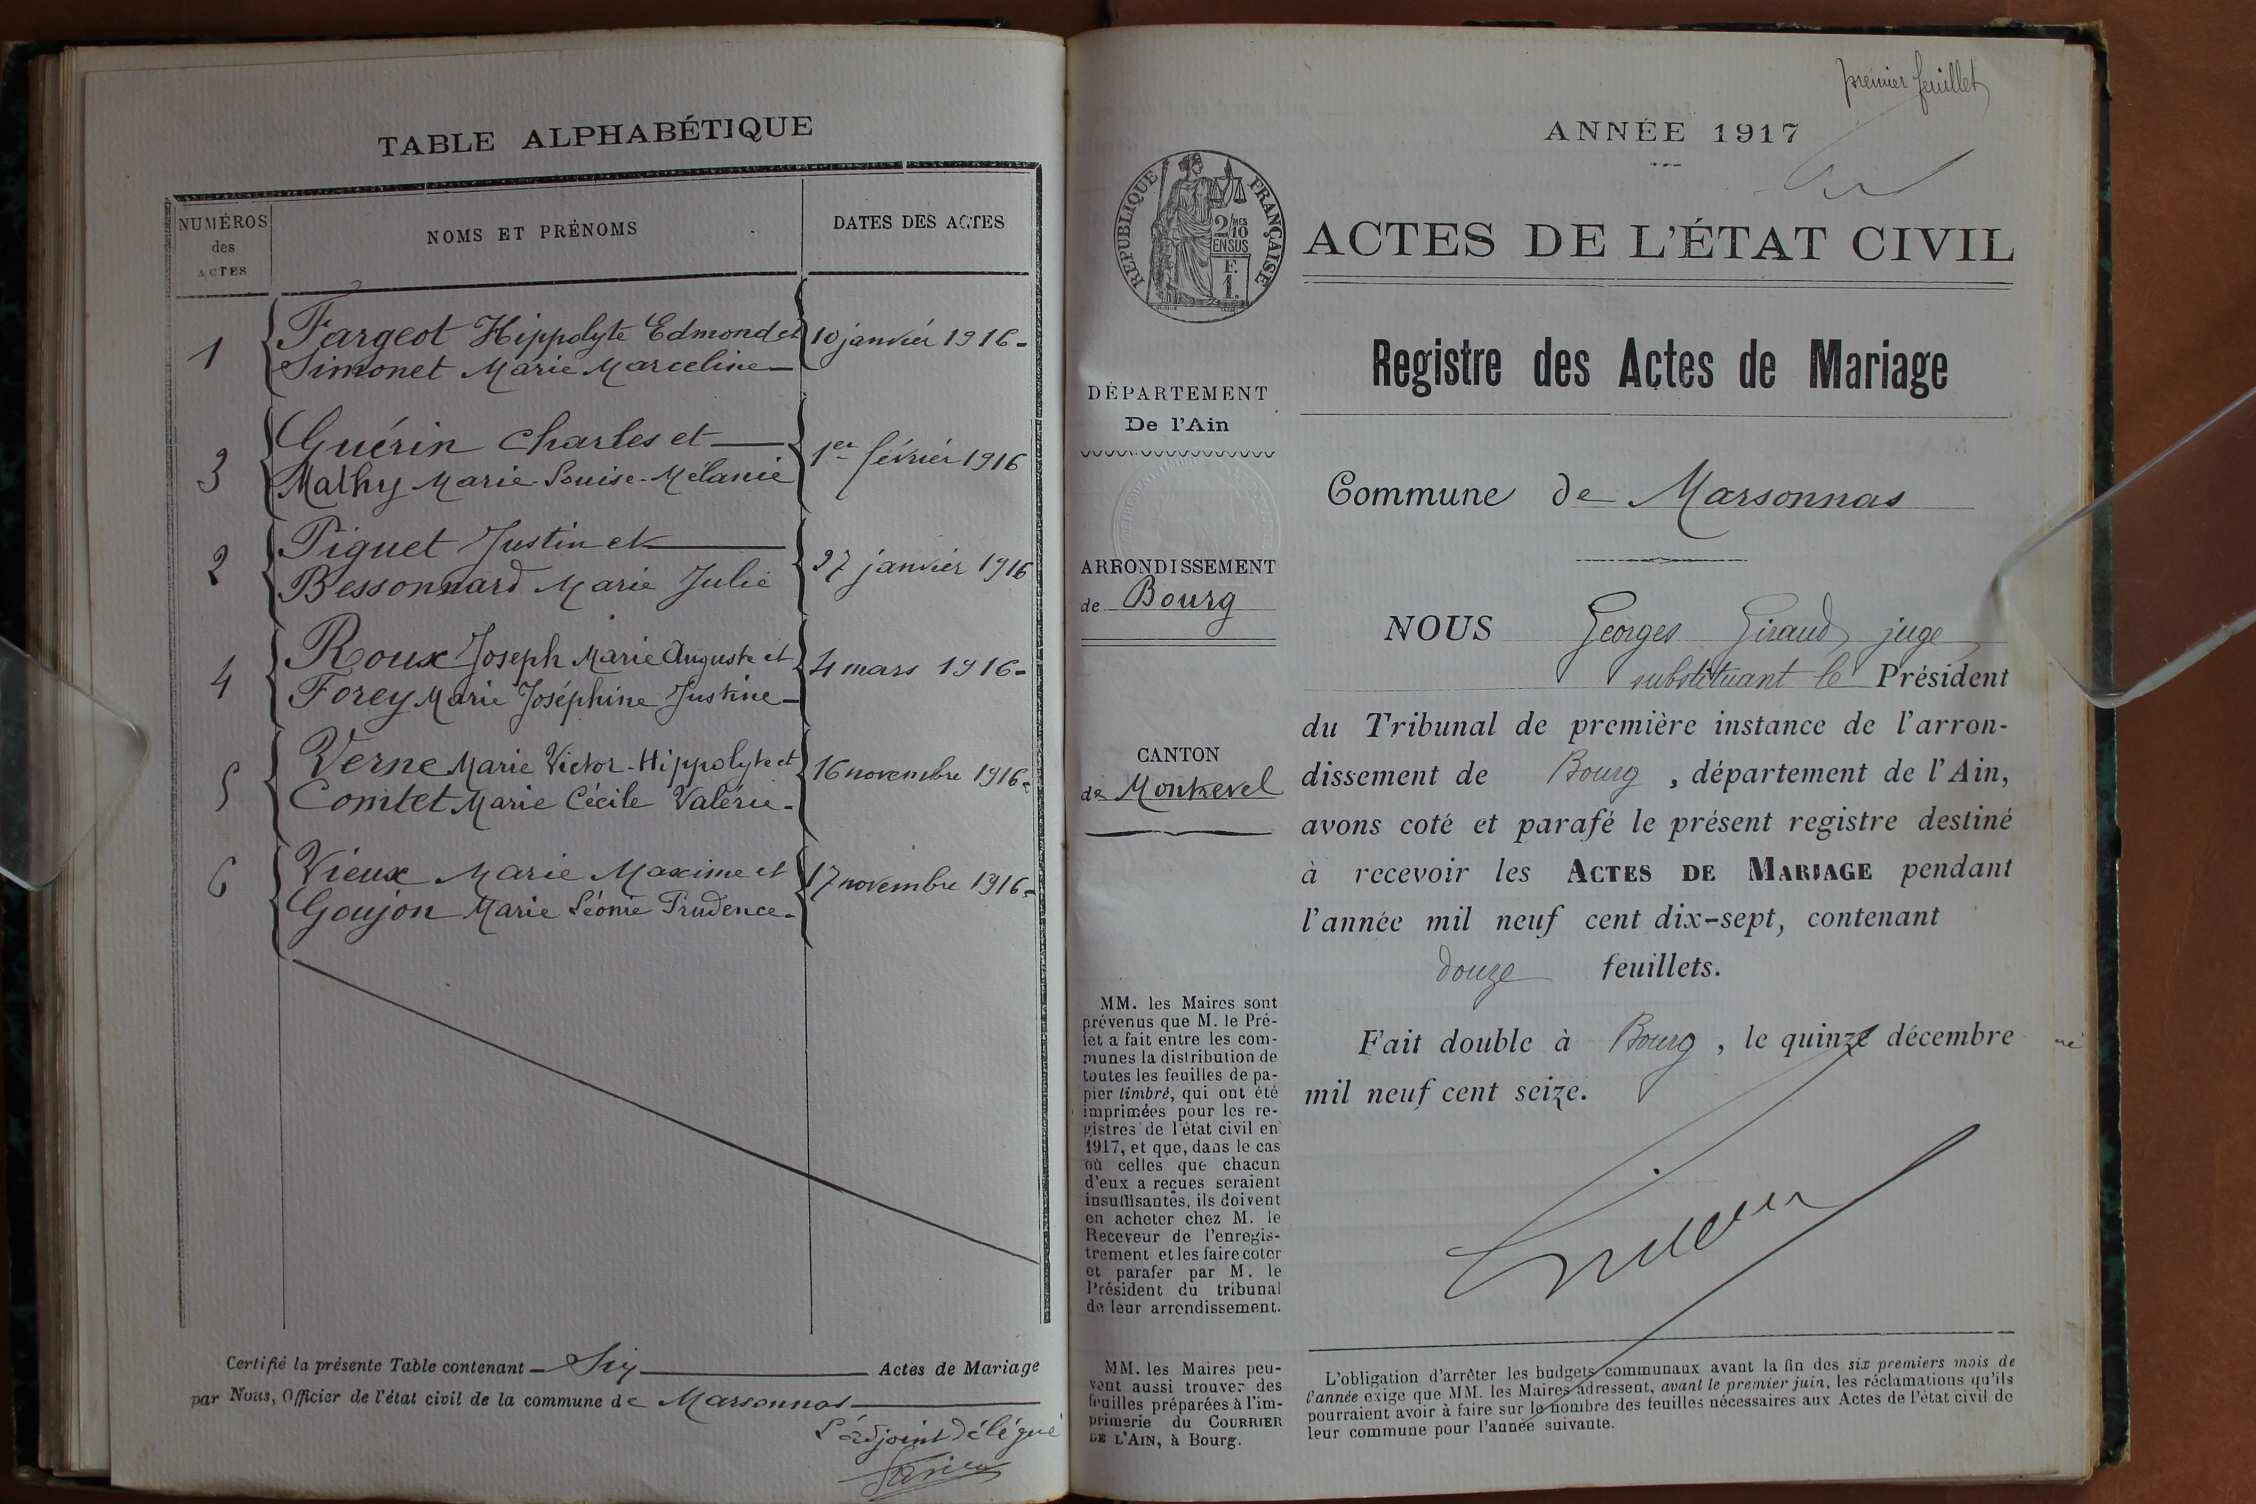 TABLE ALPHABÉTIQUE
NUMÉROS
des
ACTES
NOMS ET PRÉNOMS
DATES DES ACTES
1
Fargeot Hippolyte Edmond et
Simonet Marie Marceline
10 janvier 1916
3
Guérin Charles et
Mathy Marie-Louise-Mélanie
1er février 1916
2
Piguet Justin et
Bessonnard Marie Julie
27 janvier 1916
4
Roux Joseph Marie Auguste et
Forey Marie Joséphine Justine
4 mars 1916
5
Verne Marie Victor-Hippolyte et
Comtet Marie Cécile Valérie
16 novembre 1916
6
Vieux Marie Maxime et
Goujon Marie Léonie Prudence
17 novembre 1916
Certifié la présente Table contenant Six Actes de Mariage
par Nous, Officier de l'état civil de la commune de Marsonnas
L'adjoint délégué
premier feuillet
ANNÉE 1917
RÉPUBLIQUE FRANÇAISE
2/MES
10
EN SUS
F.
1.
ACTES DE L'ÉTAT CIVIL
Registre des Actes de Mariage
DÉPARTEMENT
De l'Ain
ARRONDISSEMENT
de Bourg
CANTON
de Montrevel
MM. les Maires sont
prévenus que M. le Pré-
fet a fait entre les com-
munes la distribution de
toutes les feuilles de pa-
pier timbré, qui ont été
imprimées pour les re-
gistres de l'état civil en
1917, et que, dans le cas
où celles que chacun
d'eux a reçues seraient
insuffisantes, ils doivent
en acheter chez M. le
Receveur de l'enregis-
trement et les faire coter
et parafer par M. le
Président du tribunal
de leur arrondissement.
MM. les Maires peu-
vent aussi trouver des
feuilles préparées à l'im-
primerie du COURRIER
DE L'AIN, à Bourg.
Commune de Marsonnas
NOUS Georges Giraud juge
substituant le Président
du Tribunal de première instance de l'arron-
dissement de Bourg, département de l'Ain,
avons coté et parafé le présent registre destiné
à recevoir les ACTES DE MARIAGE pendant
l'année mil neuf cent dix-sept, contenant
douze feuillets.
Fait double à Bourg, le quinze décembre
mil neuf cent seize.
L'obligation d'arrêter les budgets communaux avant la fin des six premiers mois de
l'année exige que MM. les Maires adressent, avant le premier juin, les réclamations qu'ils
pourraient avoir à faire sur le nombre des feuilles nécessaires aux Actes de l'état civil de
leur commune pour l'année suivante.